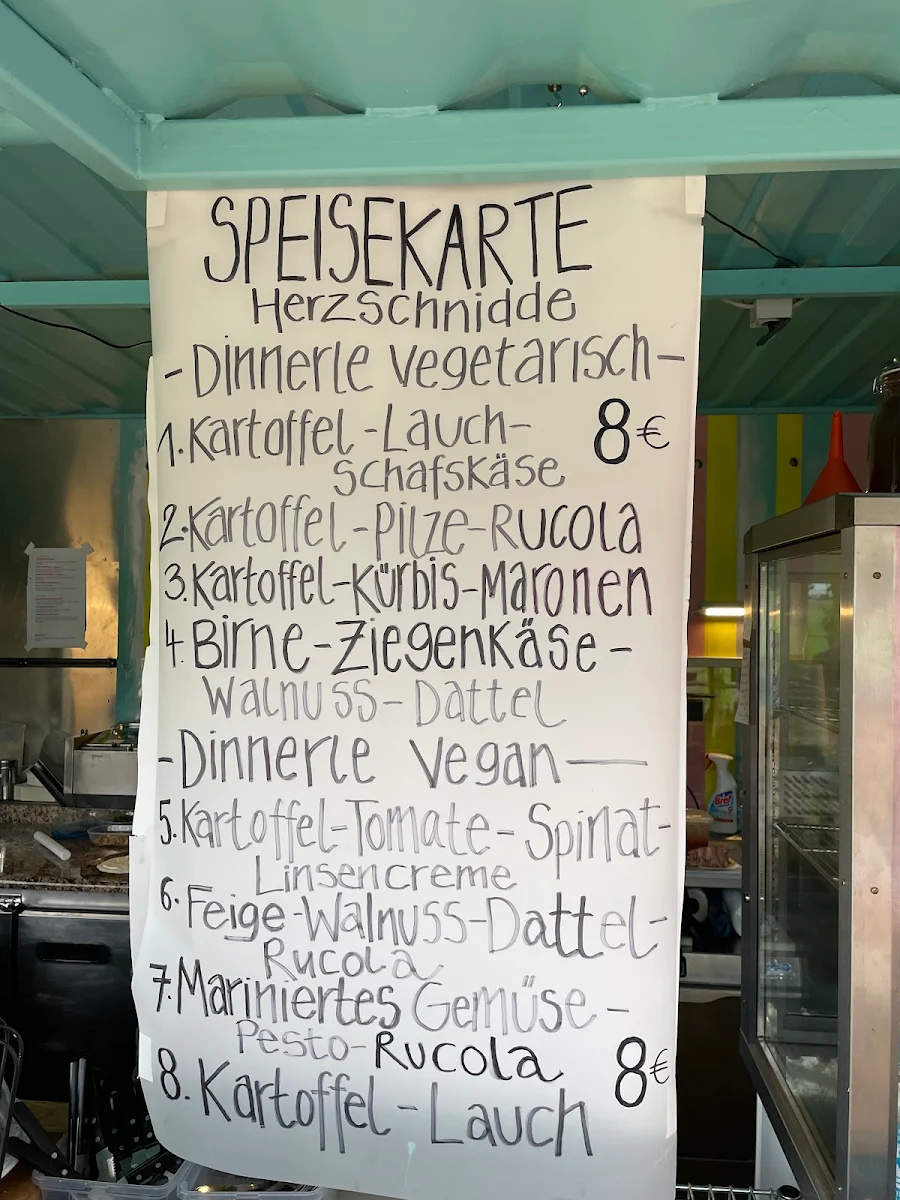 SPEISEKARTE
Herzschnidde
-Dinnerle vegetarisch-
1.Kartoffel-Lauch- 8€
Schafskäse
2.Kartoffel-Pilze-Rucola
3.Kartoffel-Kürbis-Maronen
4.Birne-Ziegenkäse-
Walnuss-Dattel
-Dinnerle vegan-
5.Kartoffel-Tomate-Spinat-
Linsencreme
6.Feige-Walnuss-Dattel-
Rucola
7.Mariniertes Gemüse-
Pesto-Rucola 8€
8.Kartoffel-Lauch
Bref